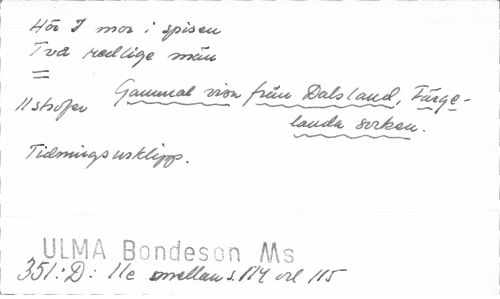 Hör I mor i spisen
Två redlige män
=
11 strofer Gammal visa från Dalsland, Färge-
landa socken.
Tidningsurklipp.
ULMA Bondeson Ms
351:D: 11e mellan s. 114 och 115